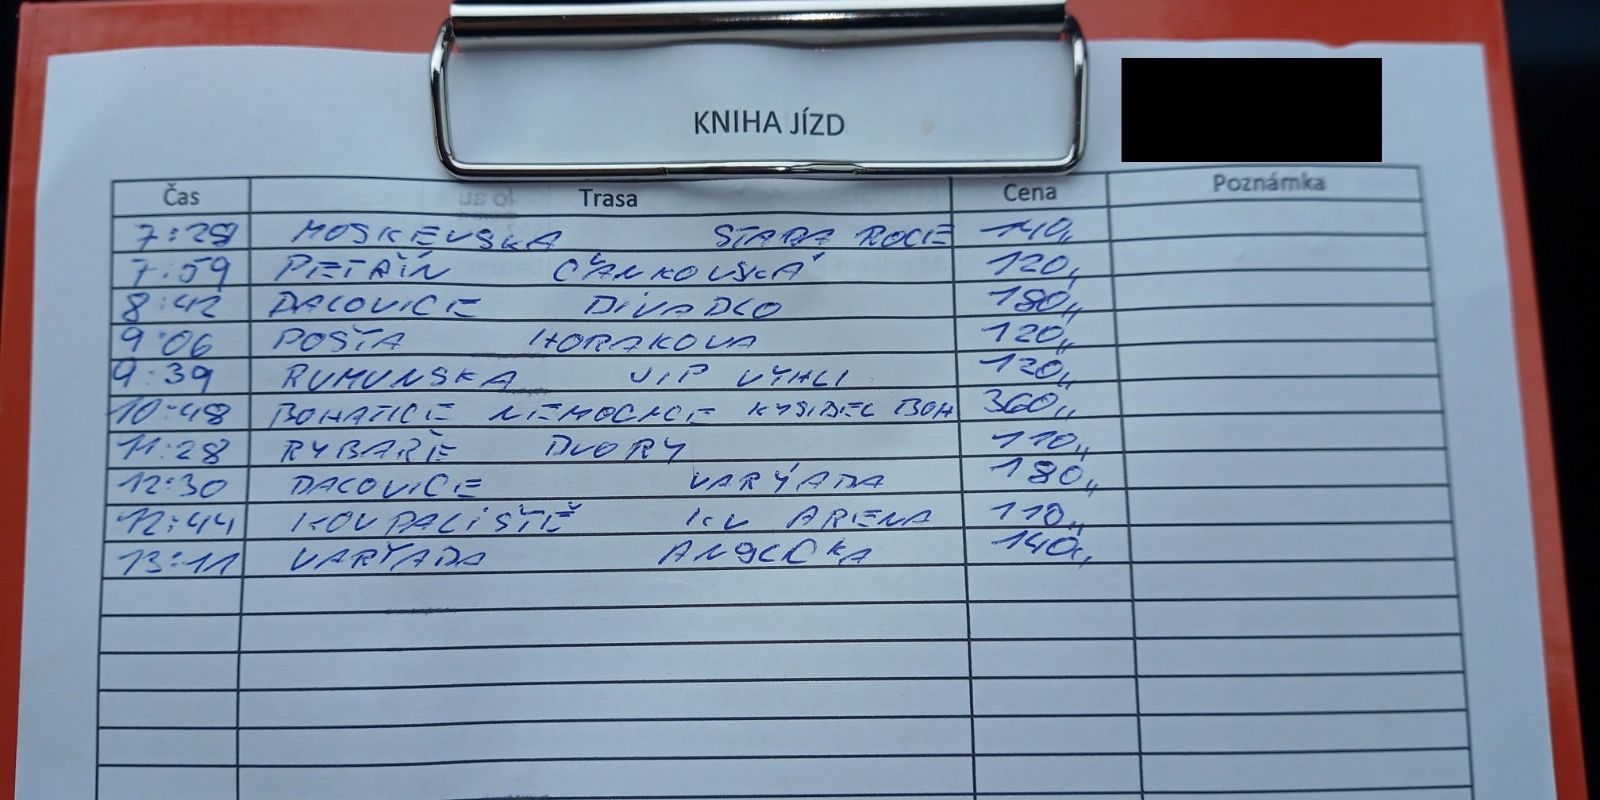 KNIHA JÍZD
Čas Trasa Cena Poznámka
7:28 MOSKEVSKA STARA ROLE 140,,
7:59 PETŘÍN ČANKOVSKÁ 120,,
8:42 DALOVICE DIVADLO 180,,
9:06 POŠTA HORAKOVA 120,,
9:39 RUMUNSKA VIP VÝHLI 120,,
10:48 BOHATICE NEMOCNICE KYSIBEL BOH 360,,
11:28 RYBAŘE DVORY 110,,
12:30 DALOVICE VARYADA 180,,
12:44 KOUPALIŠTĚ KV ARENA 110,,
13:11 VARYADA ANGLICKA 140,,